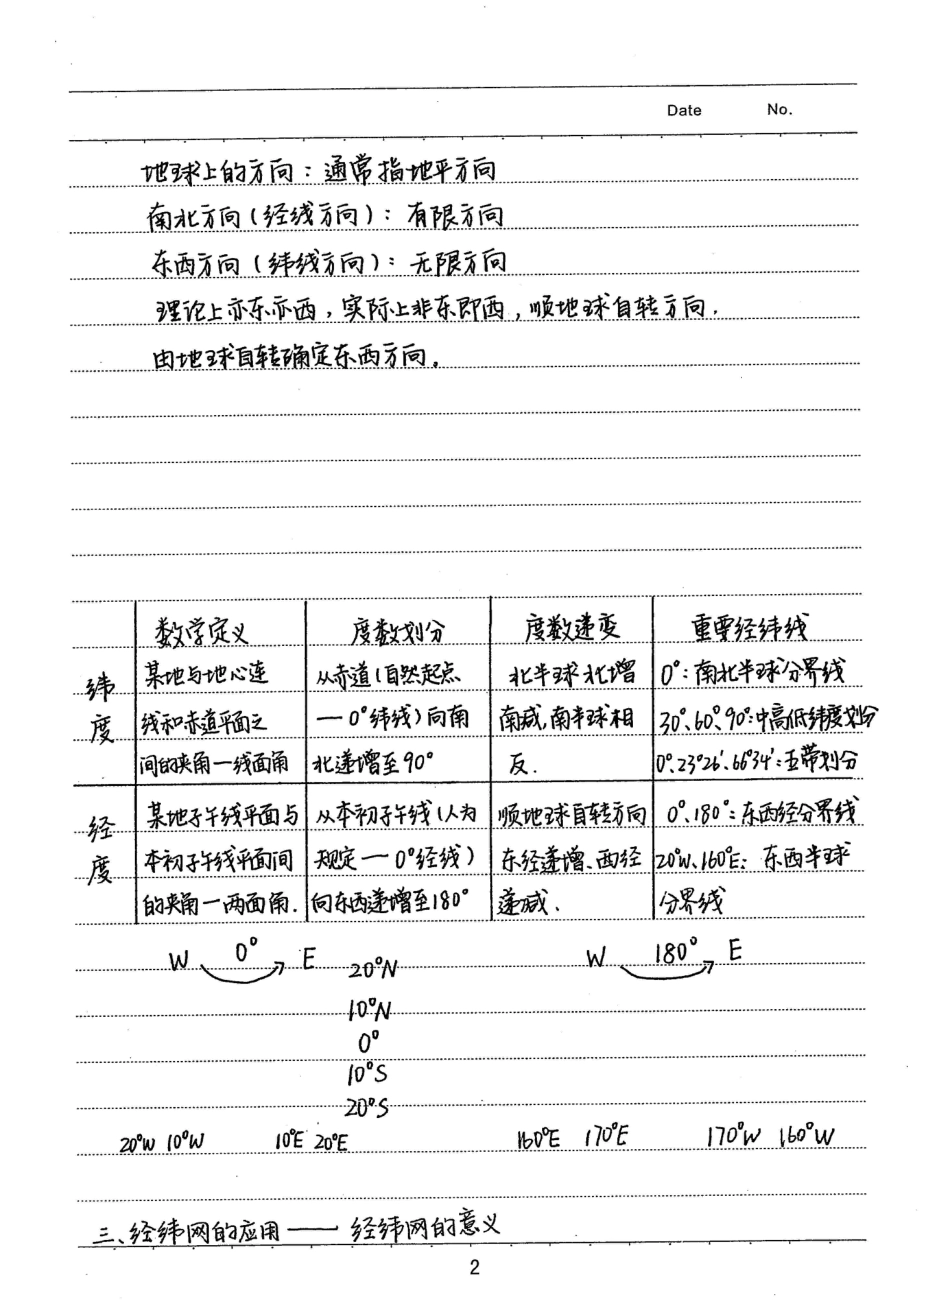 Date No.
地球上的方向：通常指地平方向
南北方向（经线方向）：有限方向
东西方向（纬线方向）：无限方向
理论上亦东亦西，实际上非东即西，顺地球自转方向.
由地球自转确定东西方向。
数学定义 度数划分 度数递变 重要经纬线
纬度
某地与地心连
线和赤道平面之
间的夹角—线面角
从赤道（自然起点
—0°纬线）向南
北递增至90°
北半球北增
南减,南半球相
反.
0°：南北半球分界线
30°、60°、90°：中高低纬度划分
0°、23°26′、66°34′：五带划分
经度
某地子午线平面与
本初子午线平面间
的夹角—两面角.
从本初子午线（人为
规定—0°经线）
向东西递增至180°
顺地球自转方向
东经递增、西经
递减.
0°、180°：东西经分界线
20°W、160°E：东西半球
分界线
W 0° E
W 180° E
20°N
10°N
0°
10°S
20°S
20°W 10°W 10°E 20°E 160°E 170°E 170°W 160°W
三、经纬网的应用——经纬网的意义
2